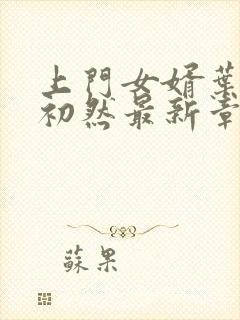 上門女婿葉
初然最新章
蘇果